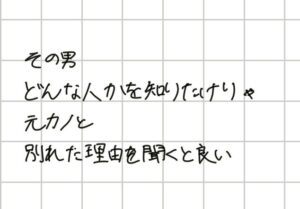 その男
どんな人かを知りたけりゃ
元カノと
別れた理由を聞くと良い